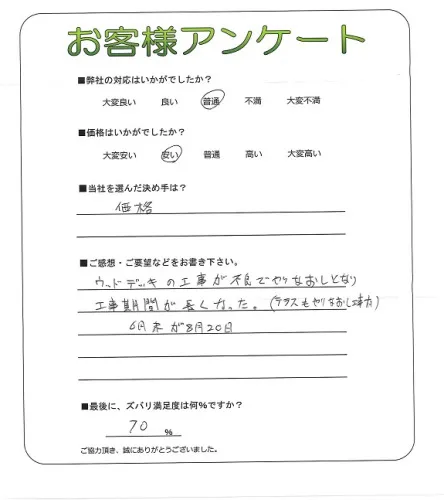 お客様アンケート
■弊社の対応はいかがでしたか？
大変良い 良い 普通 不満 大変不満
■価格はいかがでしたか？
大変安い 安い 普通 高い 大変高い
■当社を選んだ決め手は？
価格
■ご感想・ご要望などをお書き下さい。
ウッドデッキの工事が不良でやりなおしとなり
工事期間が長くなった。(テラスもやりなおし
6月末が8月20日
■最後に、ズバリ満足度は何%ですか？
70 %
ご協力頂き、誠にありがとうございました。